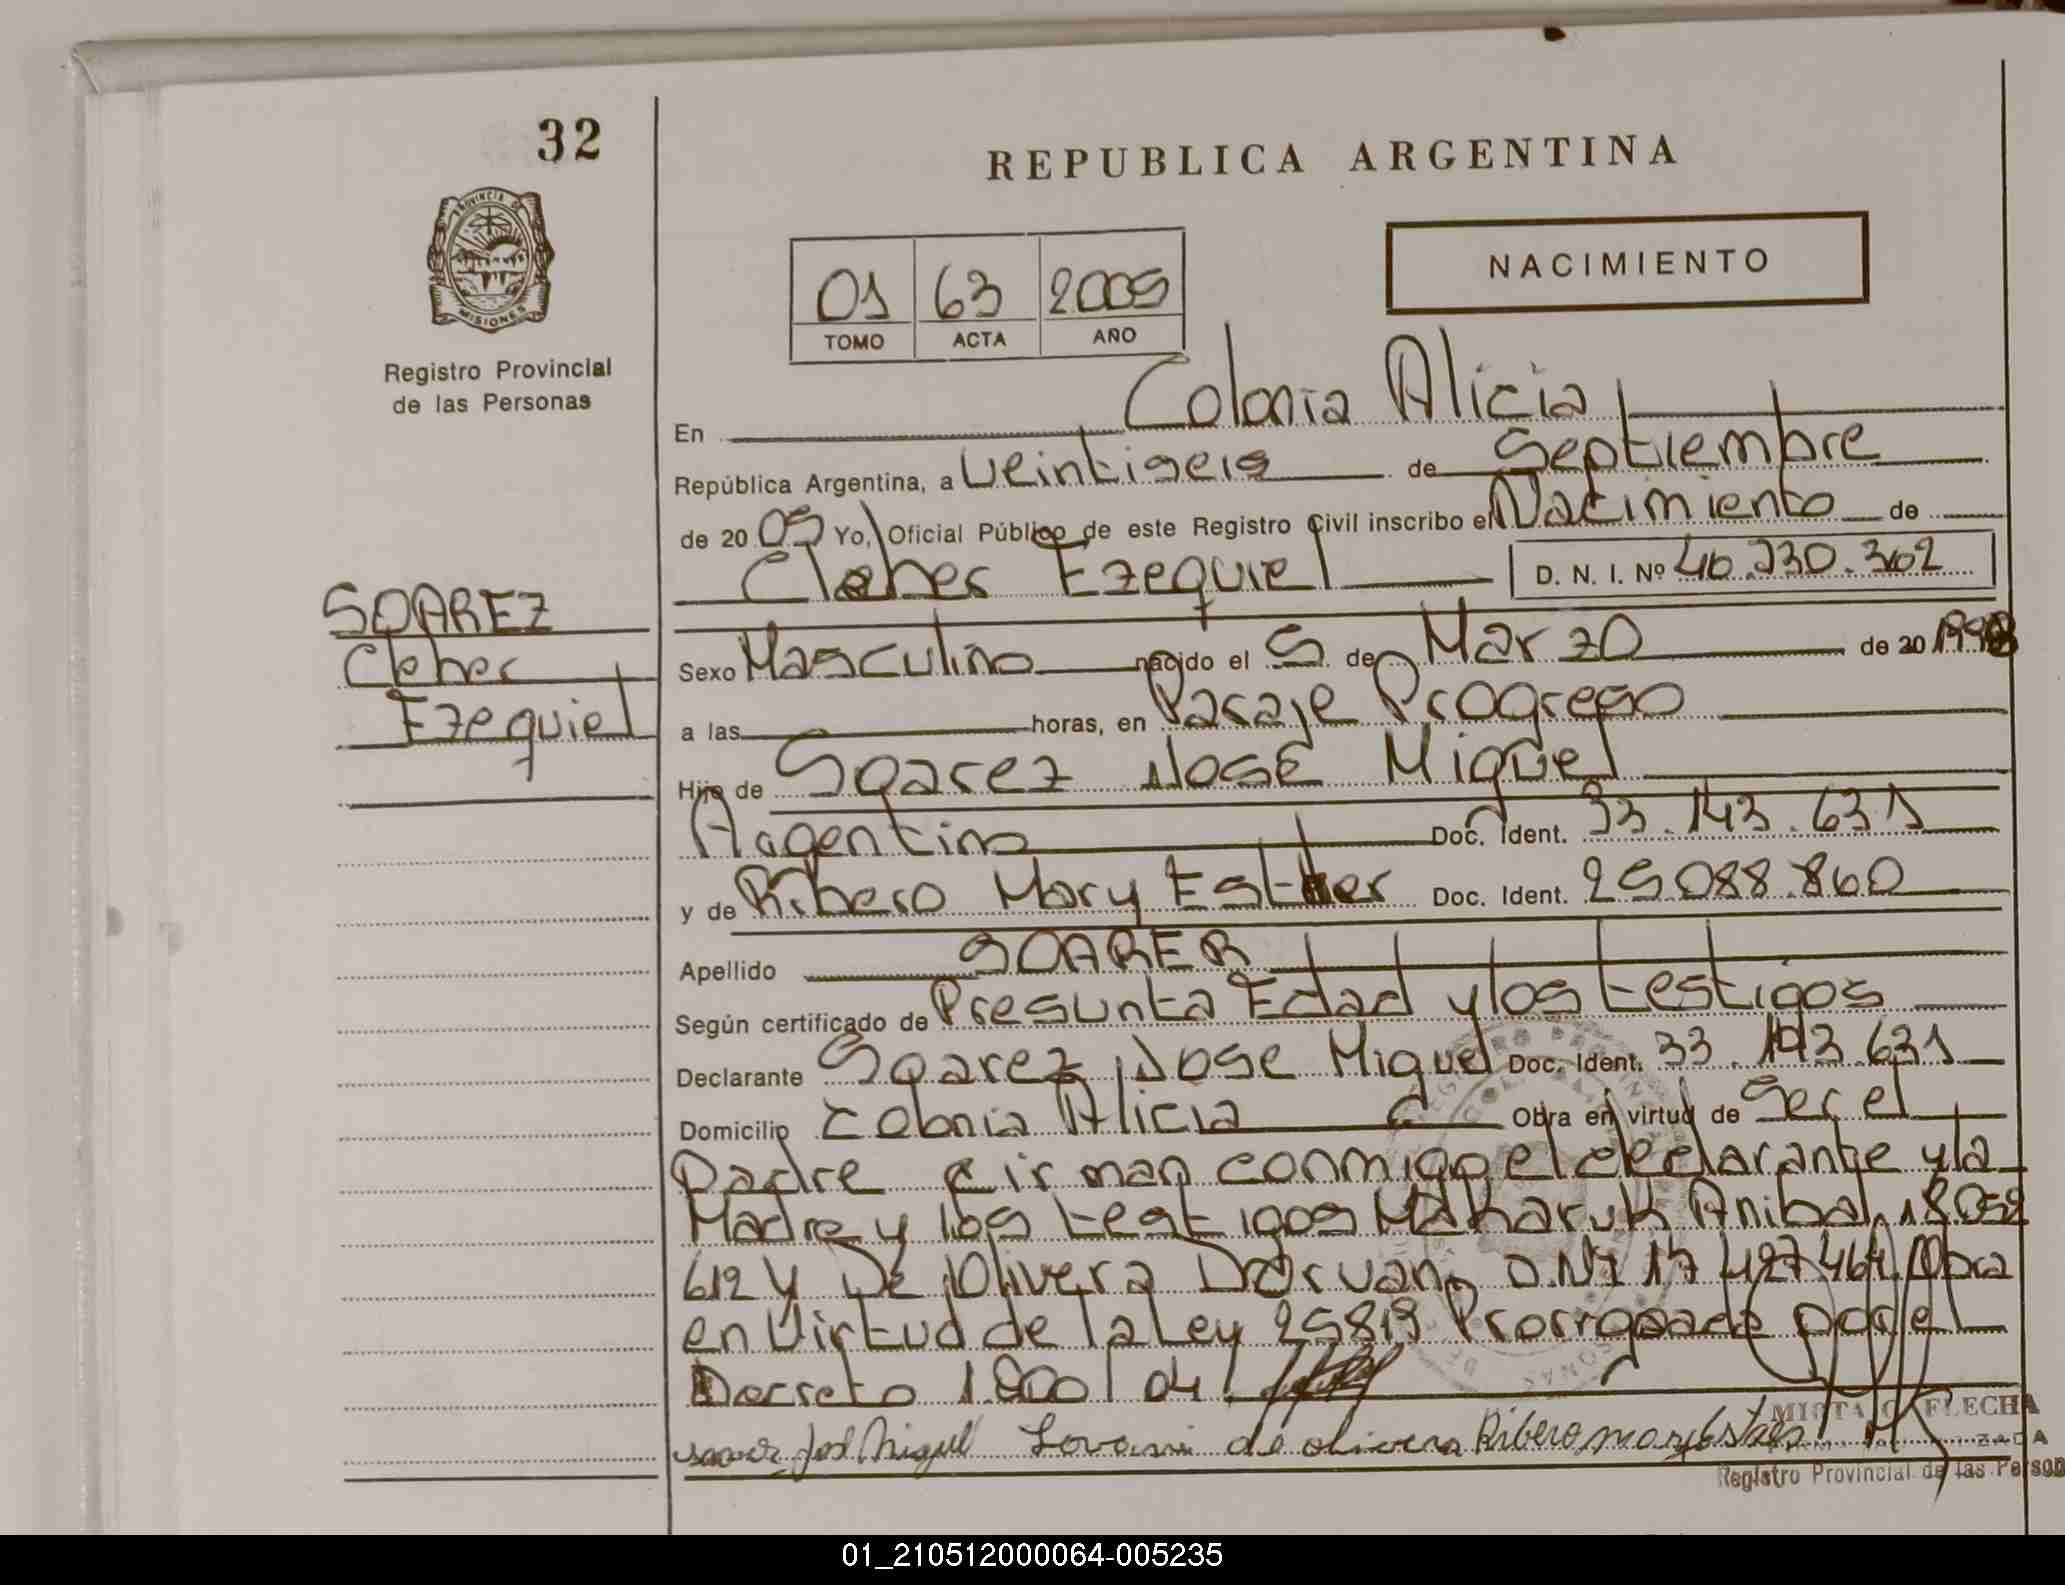 32
REPUBLICA ARGENTINA
PROVINCIA DE
MISIONES
Registro Provincial
de las Personas
NACIMIENTO
01 63 2005
TOMO ACTA AÑO
En Colonia Alicia
República Argentina, a Veintiseis de Septiembre
de 20 05 Yo, Oficial Público de este Registro Civil inscribo el Nacimiento de
Cleber Ezequiel D. N. I. Nº 40.730.362
SOAREZ
Cleber
Ezequiel
Sexo Masculino nacido el 5 de Marzo de 20 1998
a las horas, en Paraje Progreso
Hijo de Soarez Jose Miguel
Argentino Doc. Ident. 33.143.631
y de Ribero Mary Esther Doc. Ident. 25.088.860
Apellido SOARER
Según certificado de Presunta Edad y los testigos
Declarante Soarez Jose Miguel Doc. Ident. 33.143.631
Domicilio Colonia Alicia Obra en virtud de Ser el
Padre firman conmigo el declarante y la
Madre y los testigos Makaruk Anibal 18.052
612 y De Olivera Doruan D.N.I 17 427 464 Obra
en Virtud de la Ley 25819 Prorrogada por el
Decreto 1.800/04
Jose Miguel de olivera Ribero mary Ester
FLECHA
Registro Provincial de las Person
01_210512000064-005235